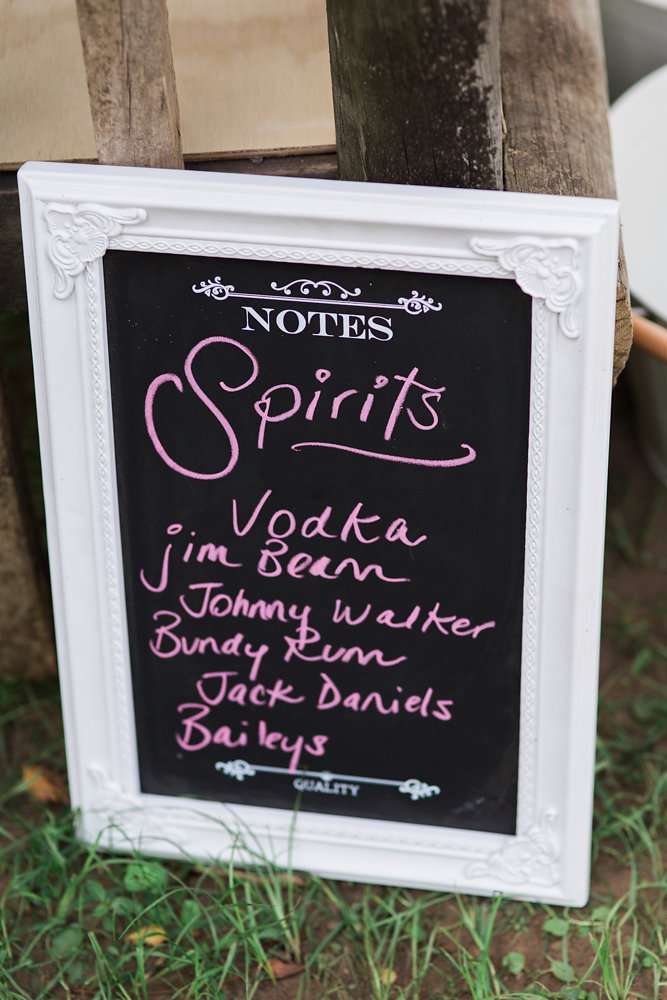 NOTES
Spirits
Vodka
jim Bean
Johnny Walker
Bundy Rum
Jack Daniels
Baileys
QUALITY